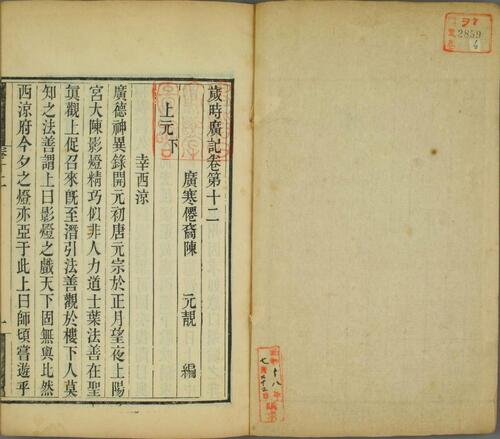 歲時廣記卷第十二
廣寒僊裔陳 元靚 編
上元下
幸西涼
廣德神異錄開元初唐元宗於正月望夜上陽
宮大陳影燈精巧似非人力道士葉法善在聖
眞觀上促召來旣至潛引法善觀於樓下人莫
知之法善謂上曰影燈之戲天下固無與比然
西涼府今夕之燈亦亞于此上曰師頃嘗遊乎
一
2859
6